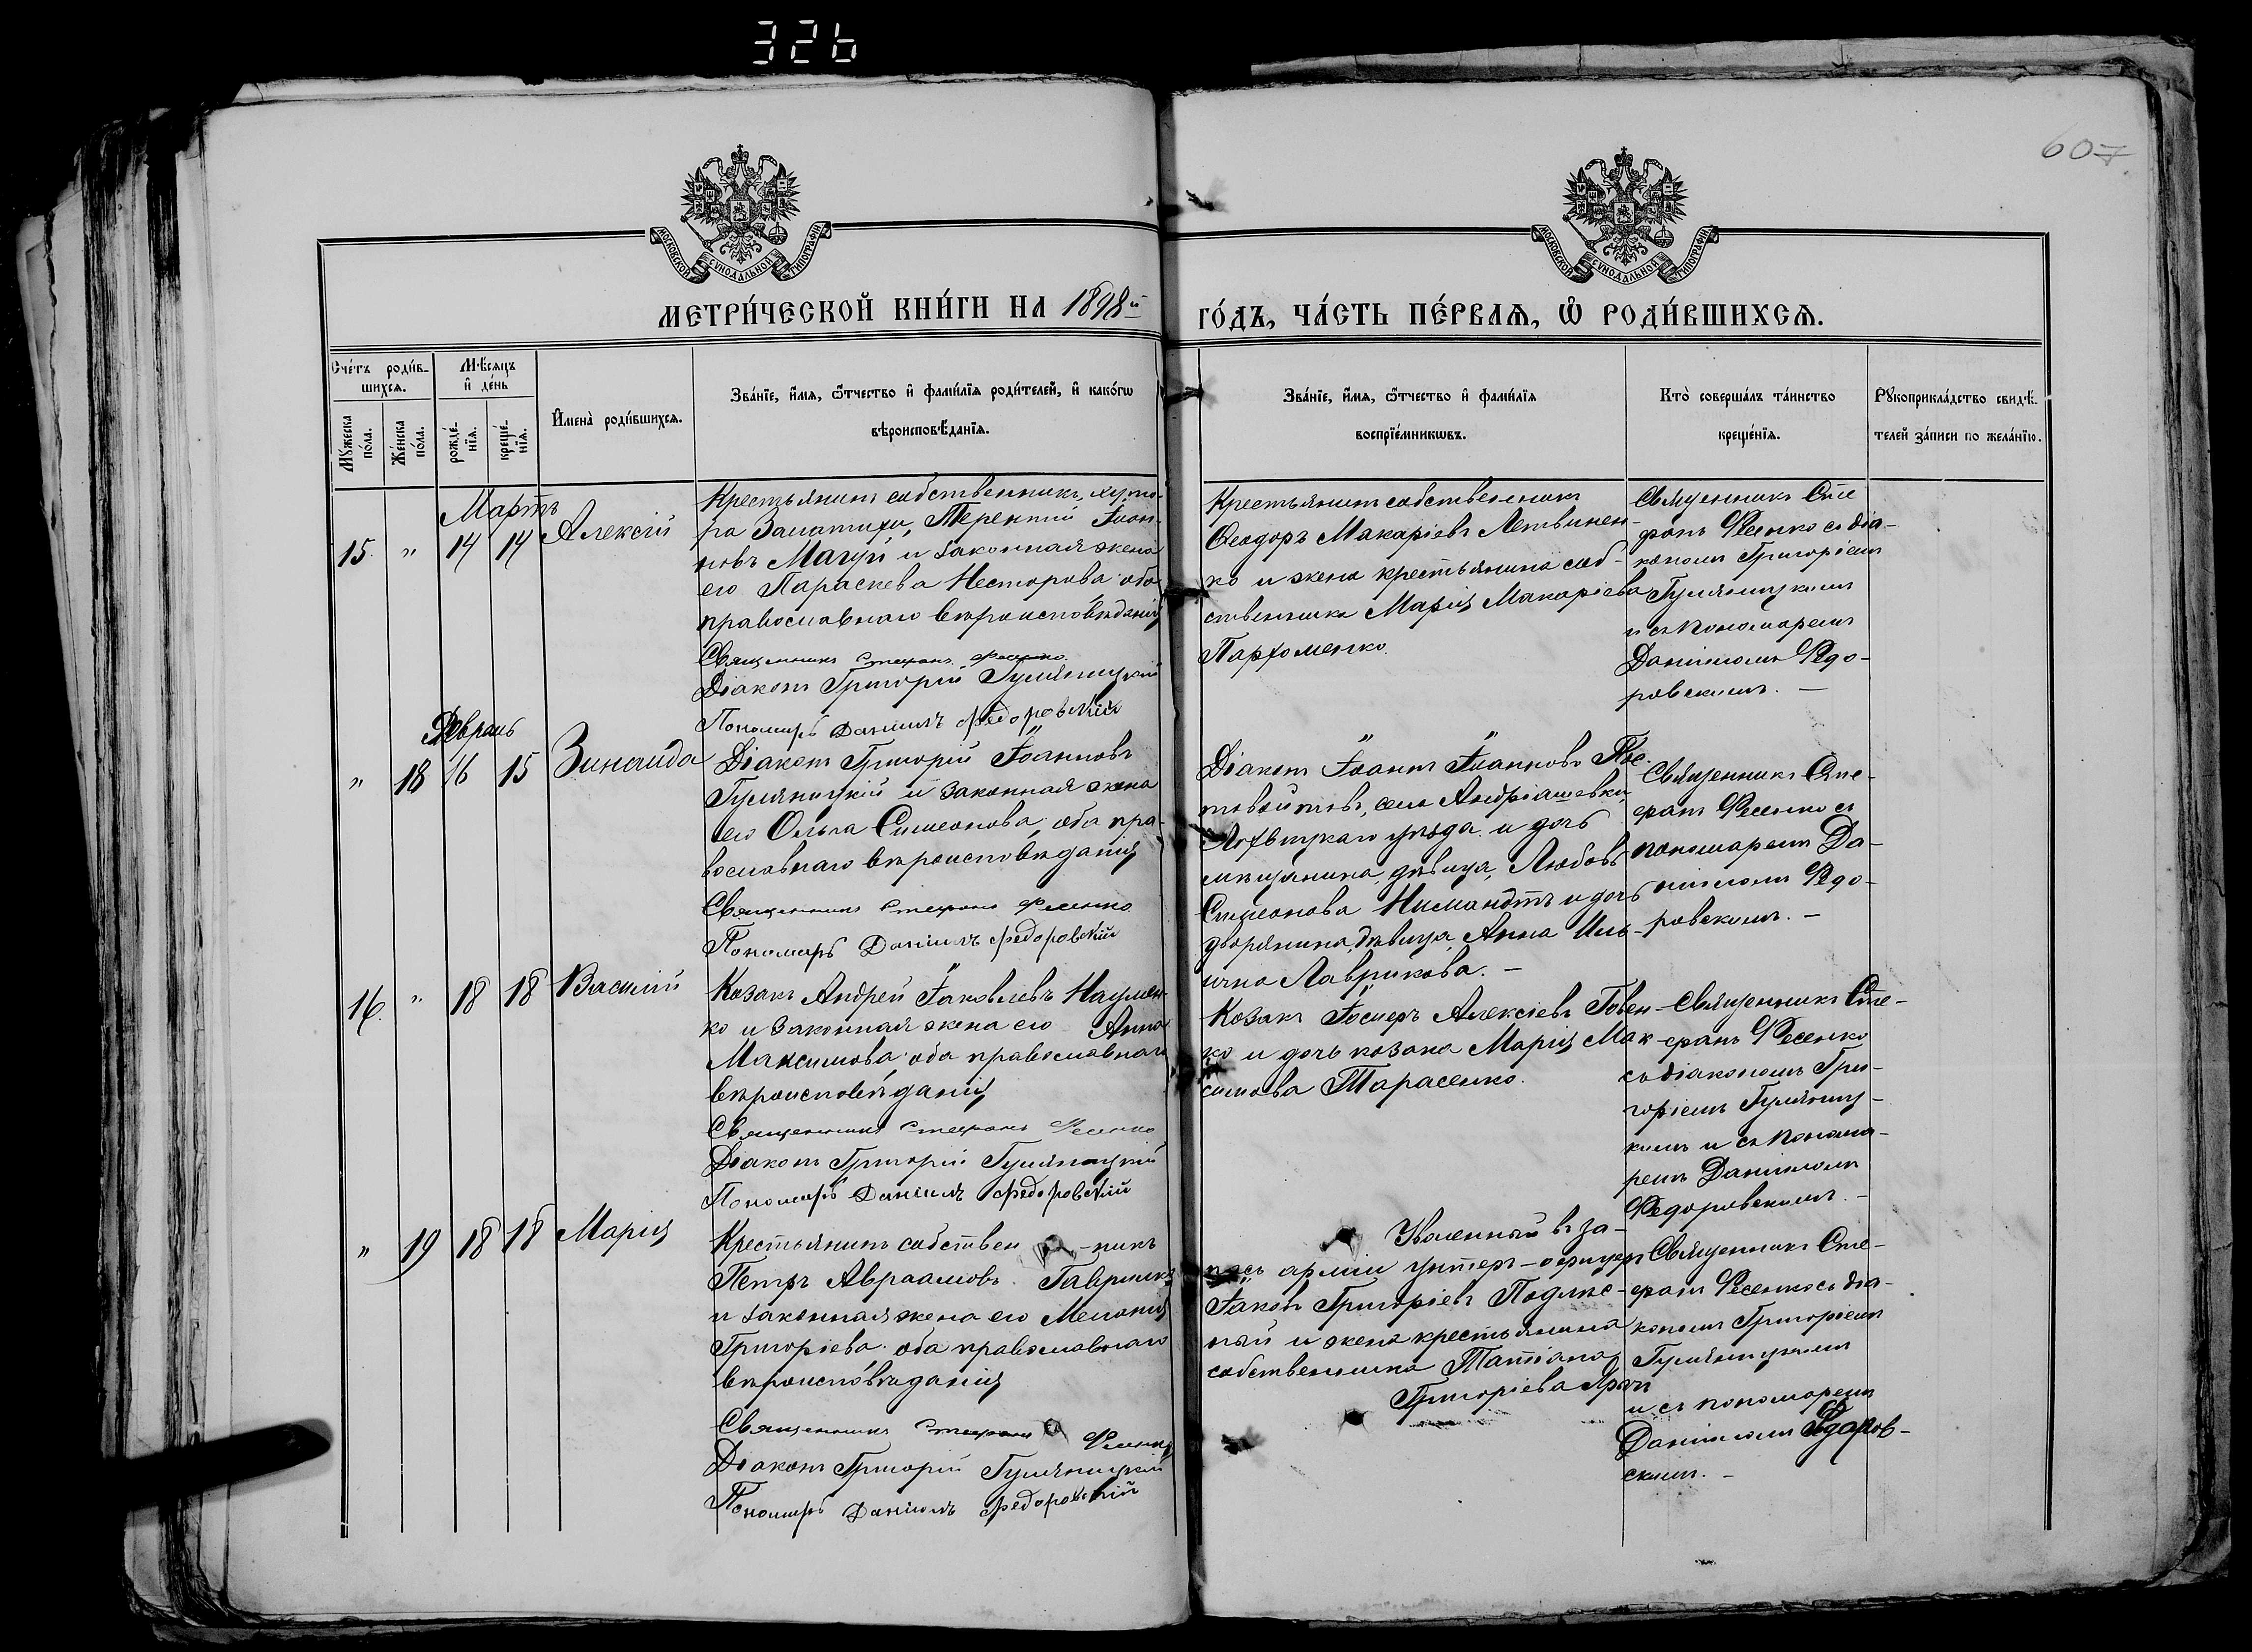 326
607
МОСКОВСКОЙ СУНОДАЛЬНОЙ ТИПОГРАФІИ
МОСКОВСКОЙ СУНОДАЛЬНОЙ ТИПОГРАФІИ
МЕТРИ́ЧЕСКОЙ КНИ́ГИ НА 1898й ГО́ДЪ, ЧА́СТЬ ПЕ́РВАѦ, Ѡ҆ РОДИ́ВШИХСѦ.
Сче́тъ роди́в-
шихсѧ.
Мѣ́сѧцъ
и҆ де́нь
Мꙋ́жеска по́ла.
Же́нска по́ла.
рожде́-нїѧ.
креще́-нїѧ.
И҆мена̀ роди́вшихсѧ.
Зва́нїе, и҆́мѧ, ѻ҆́тчество и҆ фами́лїѧ роди́телей, и҆ како́гѡ
вѣроисповѣ́данїѧ.
Зва́нїе, и҆́мѧ, ѻ҆́тчество и҆ фами́лїѧ
воспрїе́мникѡвъ.
Кто̀ соверша́лъ та́инство
креще́нїѧ.
Рꙋкоприкла́дство свидѣ́-
телей за́писи по жела́нїю.
Мартъ
15. " 14 14 Алексій
Крестьянинъ собственникъ, хуто-
ра Терентій Іоан-
новъ и законная жена
его Параскева Несторова, оба
православнаго вѣроисповѣданія
Священникъ Стефанъ Фесенко
Діаконъ Григорій Гуляницкій
Пономарь Даніилъ Федоровскій
Крестьянинъ собственникъ
Ѳеодоръ Макаріевъ Летвинен-
ко и жена крестьянина соб-
ственника Марія Макаріева
Пархоменко.
Священникъ Сте
фанъ Фесенко съ діа-
кономъ Григоріемъ
Гуляницкимъ
и съ пономаремъ
Даніиломъ Федо-
ровскимъ. —
Февраль
" 18 16 15 Зинаида
Діаконъ Григорій Іоанновъ
Гуляницкій и законная жена
его Ольга Симеонова, оба пра-
вославнаго вѣроисповѣданія
Священникъ Стефанъ Фесенко
Пономарь Даніилъ Федоровскій
Діаконъ Іоаннъ Іоанновъ
села Андріашевки,
Лохвицкаго уѣзда и дочь
мѣщанина, дѣвица, Любовь
Симеонова и дочь
дворянина, дѣвица, Анна Иль-
ична Лаврикова. —
Священникъ Сте-
фанъ Фесенко съ
пономаремъ Да-
ніиломъ Федо-
ровскимъ. —
16. " 18 18 Василій
Козакъ Андрей Іаковлевъ Наумен-
ко и законная жена его Анна
Максимова, оба православнаго
вѣроисповѣданія
Священникъ Стефанъ Фесенко
Діаконъ Григорій Гуляницкій
Пономарь Даніилъ Федоровскій
Козакъ Алексіевъ Говен-
ко и дочь козака Марія Мак-
симова Тарасенко.
Священникъ Сте-
фанъ Фесенко
съ діакономъ Гри-
горіемъ Гуляниц-
кимъ и съ понома-
ремъ Даніиломъ
Федоровскимъ. —
" 19 18 18 Марія
Крестьянинъ собствен-никъ
Петръ Авраамовъ
и законная жена его Меланія
Григоріева, оба православнаго
вѣроисповѣданія
Священникъ Стефанъ Фесенко
Діаконъ Григорій Гуляницкій
Пономарь Даніилъ Федоровскій
Уволенный въ за-
пасъ арміи унтеръ-офицеръ
Іаковъ Григоріевъ Подлѣс-
ный и жена крестьянина
собственника Татіана
Григоріева
Священникъ Сте-
фанъ Фесенко съ діа-
кономъ Григоріемъ
Гуляницкимъ
и съ пономаремъ
Даніиломъ Федоров-
скимъ. —